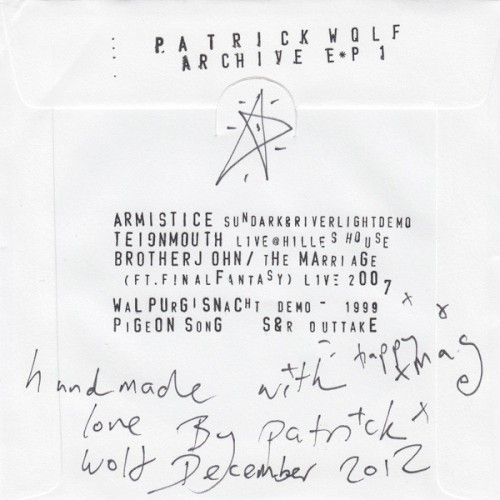 PATRICK WOLF
ARCHIVE E*P 1
ARMISTICE SUNDARK&RIVERLIGHTDEMO
TEIGNMOUTH LIVE@HILLES HOUSE
BROTHERJOHN/ THE MARRIAGE
(FT.FINALFANTASY) LIVE 2007
WALPURGISNACHT DEMO - 1999
PIGEON SONG S&R OUTTAKE
happy xmas
handmade with
love By patrick
wolf December 2012